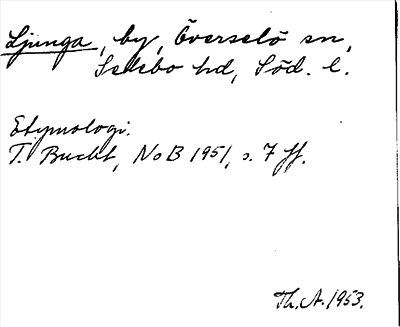 Ljunga, by, Överselö sn,
Selebo hd, Söd. l.
Etymologi.
T. Bucht, NoB 1951, s. 7 ff.
Th. A. 1953.